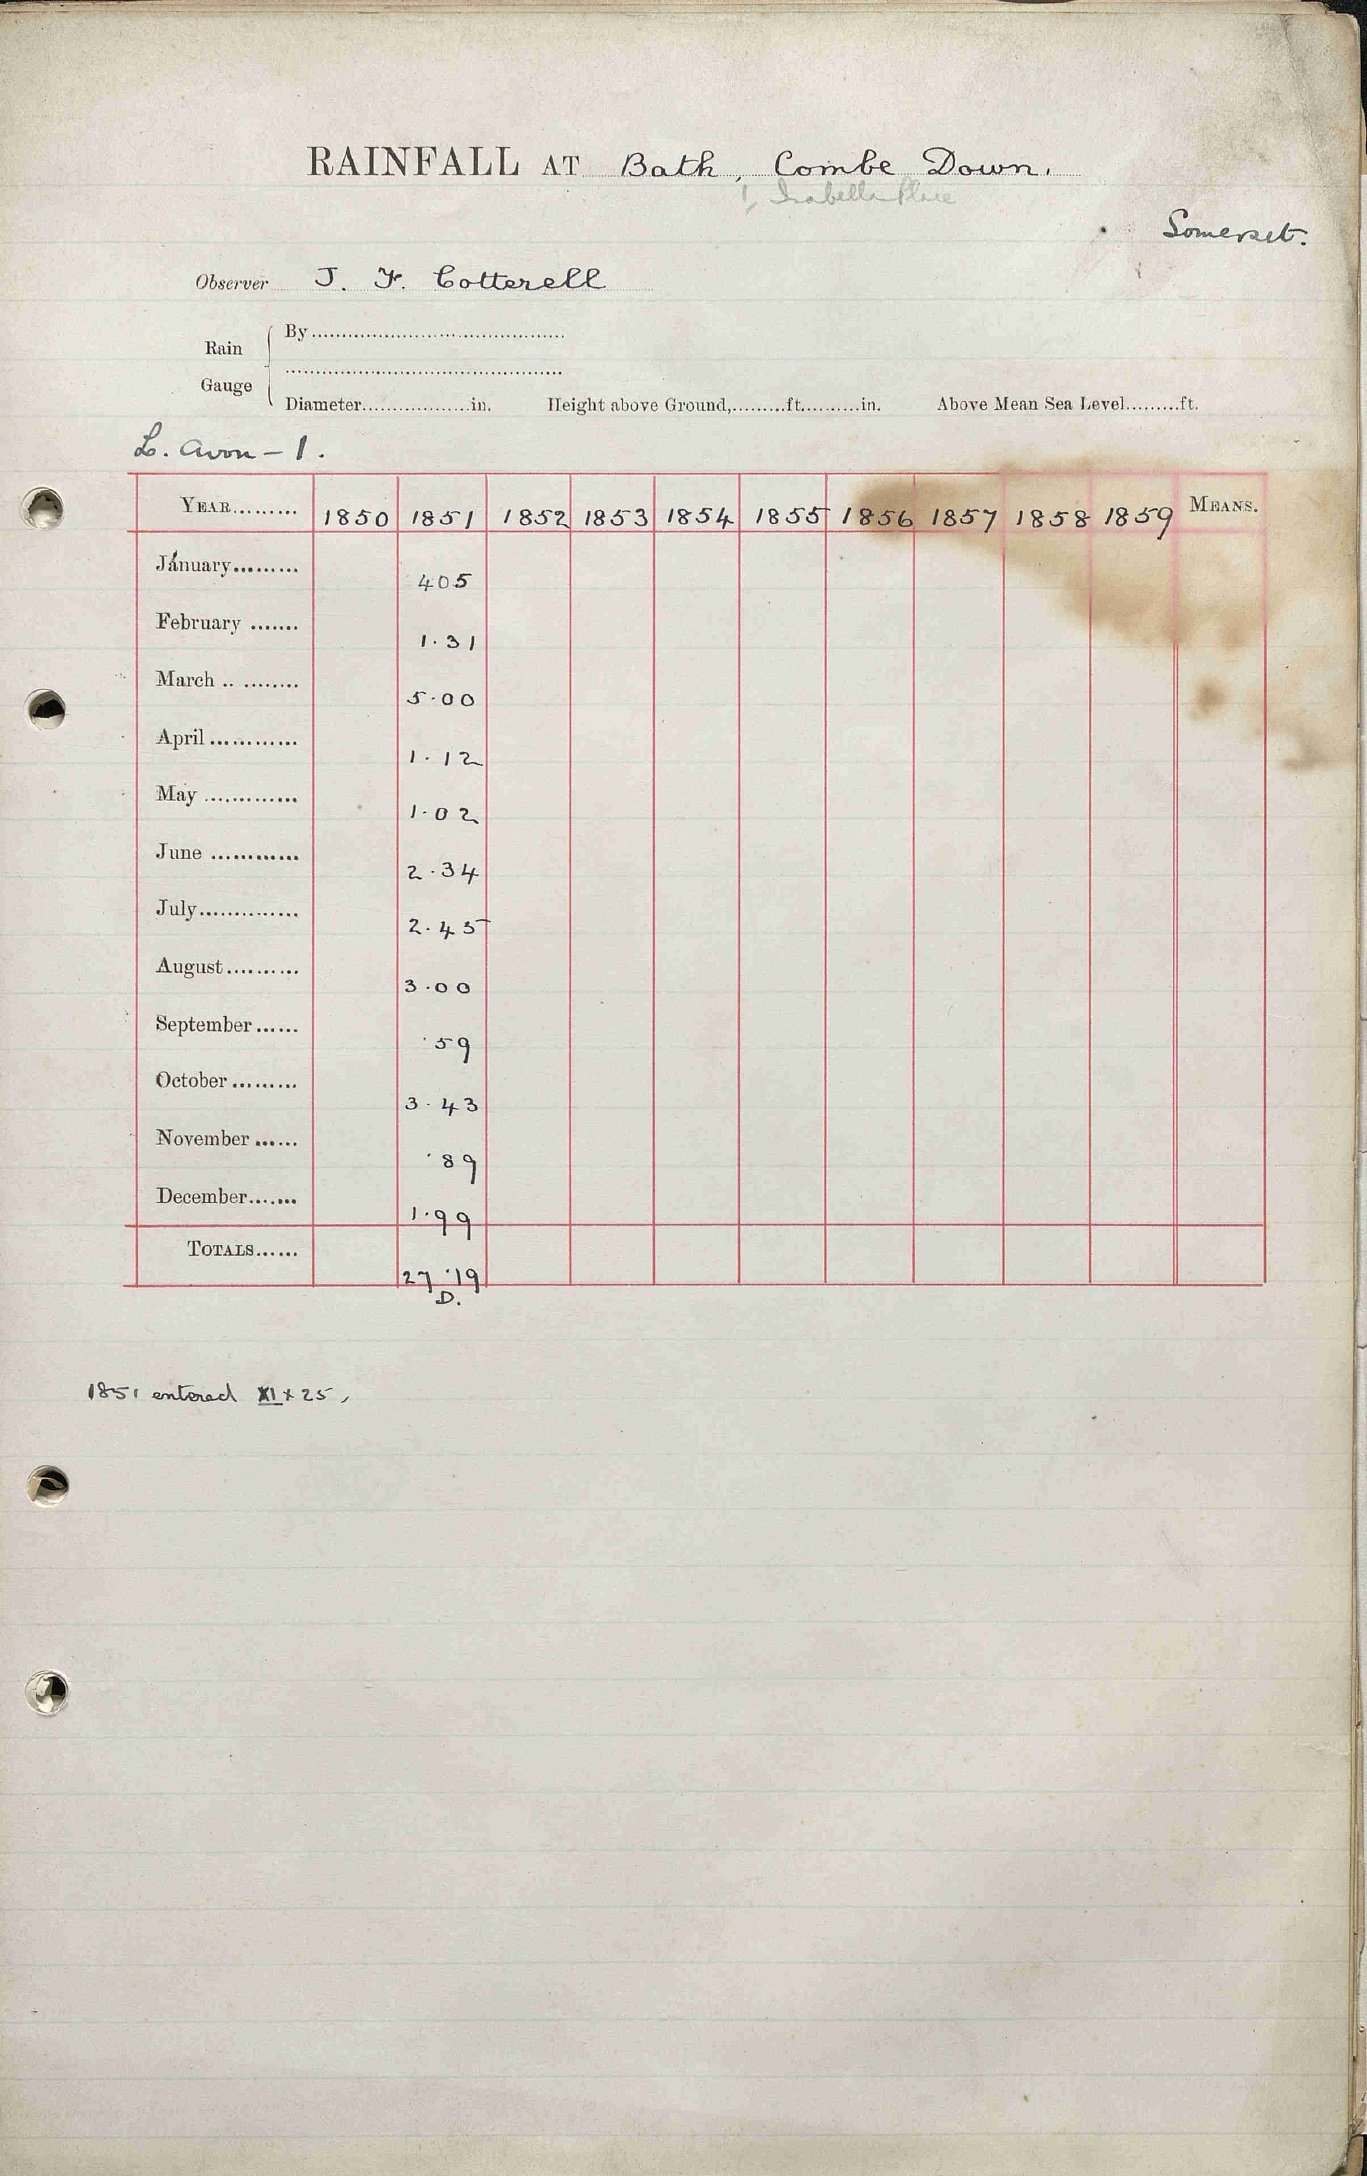 RAINFALL AT Bath, Combe Down.
1, Isabella Place
Somerset.
Observer J. F. Cotterell
Rain Gauge
By
Diameter in. Height above Ground, ft. in. Above Mean Sea Level ft.
L. Avon - 1.
YEAR 1850 1851 1852 1853 1854 1855 1856 1857 1858 1859 MEANS.
January 405
February 1.31
March 5.00
April 1.12
May 1.02
June 2.34
July 2.45
August 3.00
September .59
October 3.43
November .89
December 1.99
TOTALS 27.19
D.
1851 entered XI x 25,